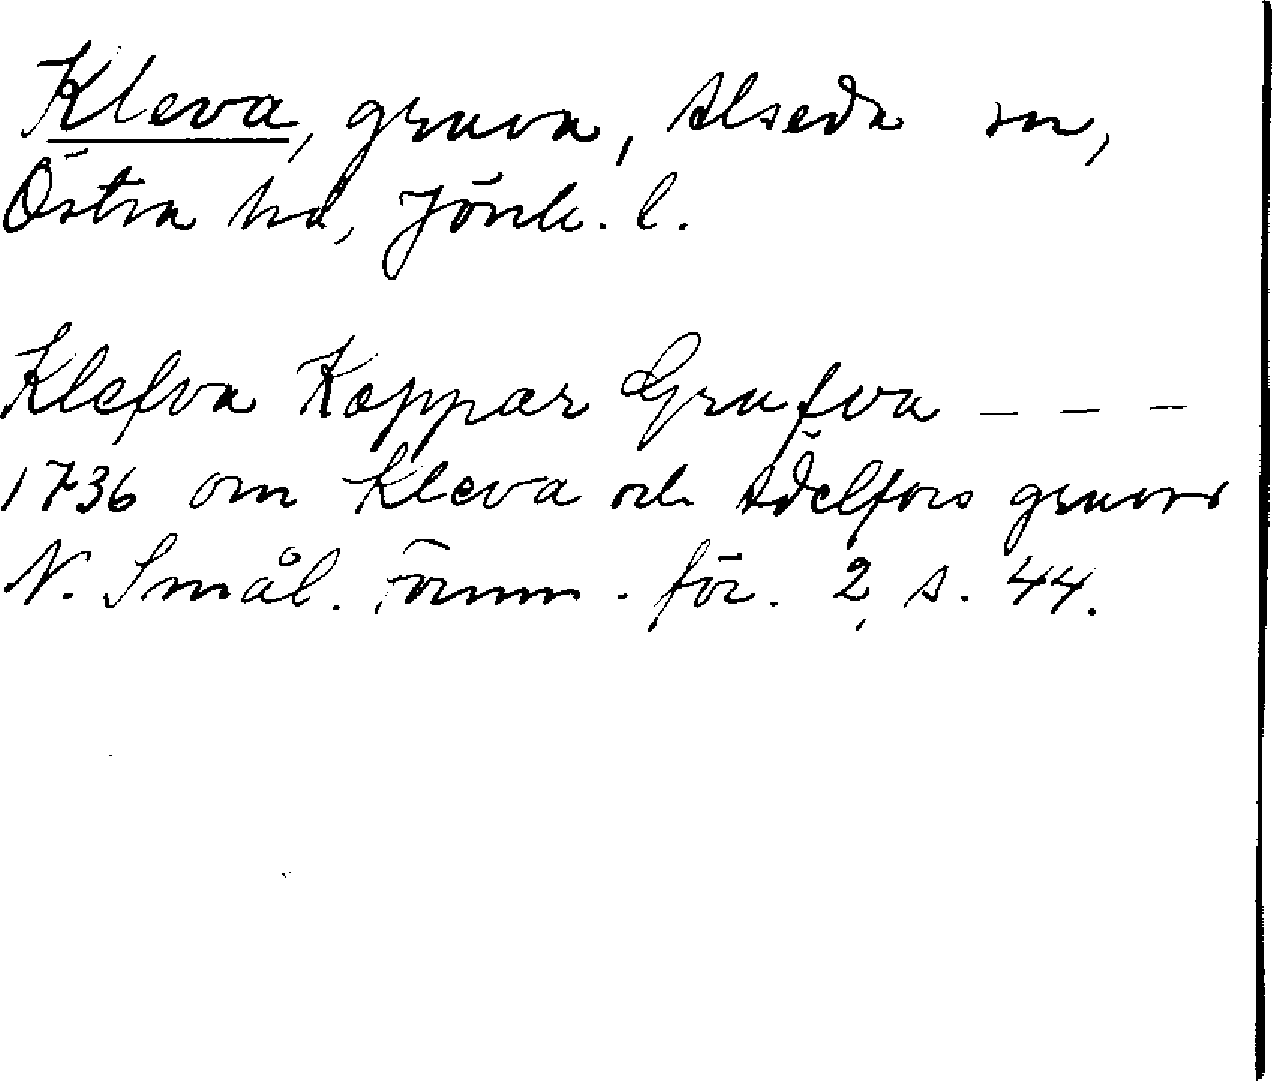 Kleva, gruva, Alseda sn,
Östra hd, Jönk. l.
Klefva Koppar Grufva - - -
1736 om Kleva och Ädelfors gruvor
N. Smål. Fornm. för. 2, s. 44.